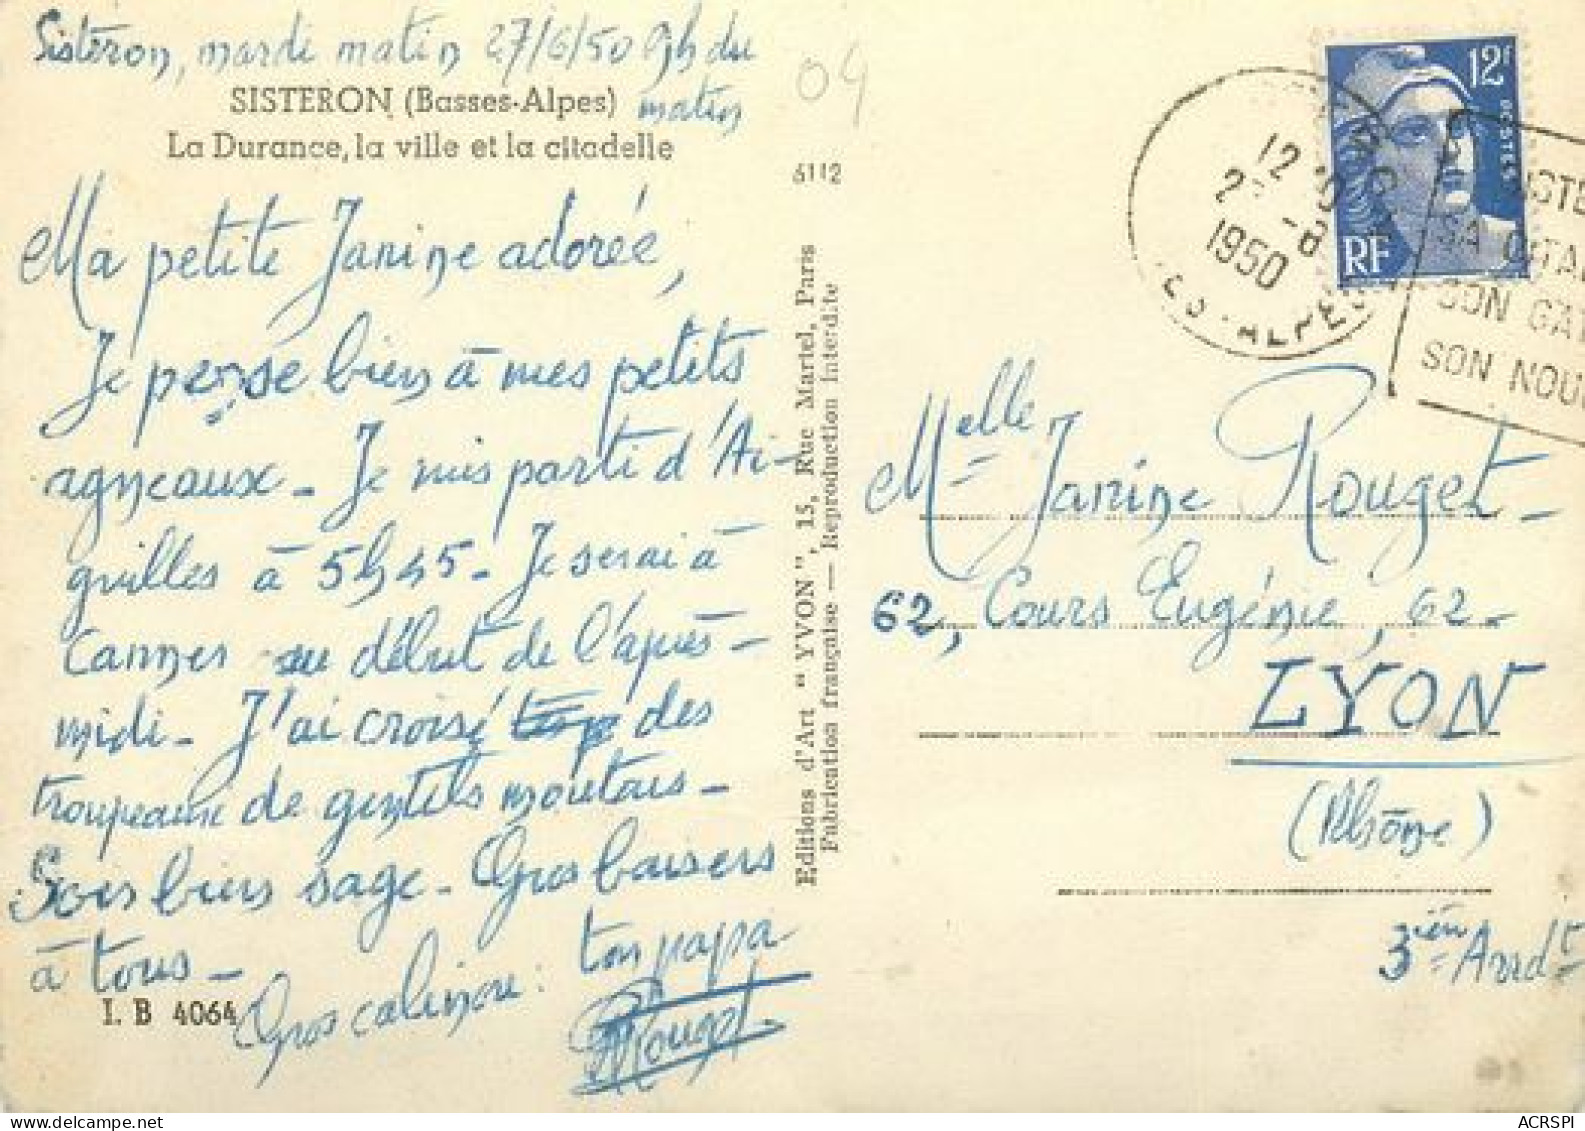 Sistéron, mardi matin 27/6/50 9h du
matin
SISTERON (Basses-Alpes)
La Durance, la ville et la citadelle
04
6112
Ma petite Janine adorée,
Je pense bien à mes petits
agneaux - Je suis parti d'Ai-
guilles à 5h45 - Je serai à
Cannes au début de l'après-
midi - J'ai croisé des
troupeaux de gentils moutons -
Sois bien sage - Gros baisers
à tous -
Gros calinou :
ton papa
Rouget
I. B 4064
Editions d'Art "YVON", 15, Rue Martel, Paris
Fabrication française — Reproduction interdite
12f
POSTES
RF
12
1950
ES-ALPES
SISTE
SA CITA
SON GA
SON NOU
Melle Janine Rouget -
62, Cours Eugénie, 62 -
LYON
(Rhône)
3ièm Arrdt
ACRSPI